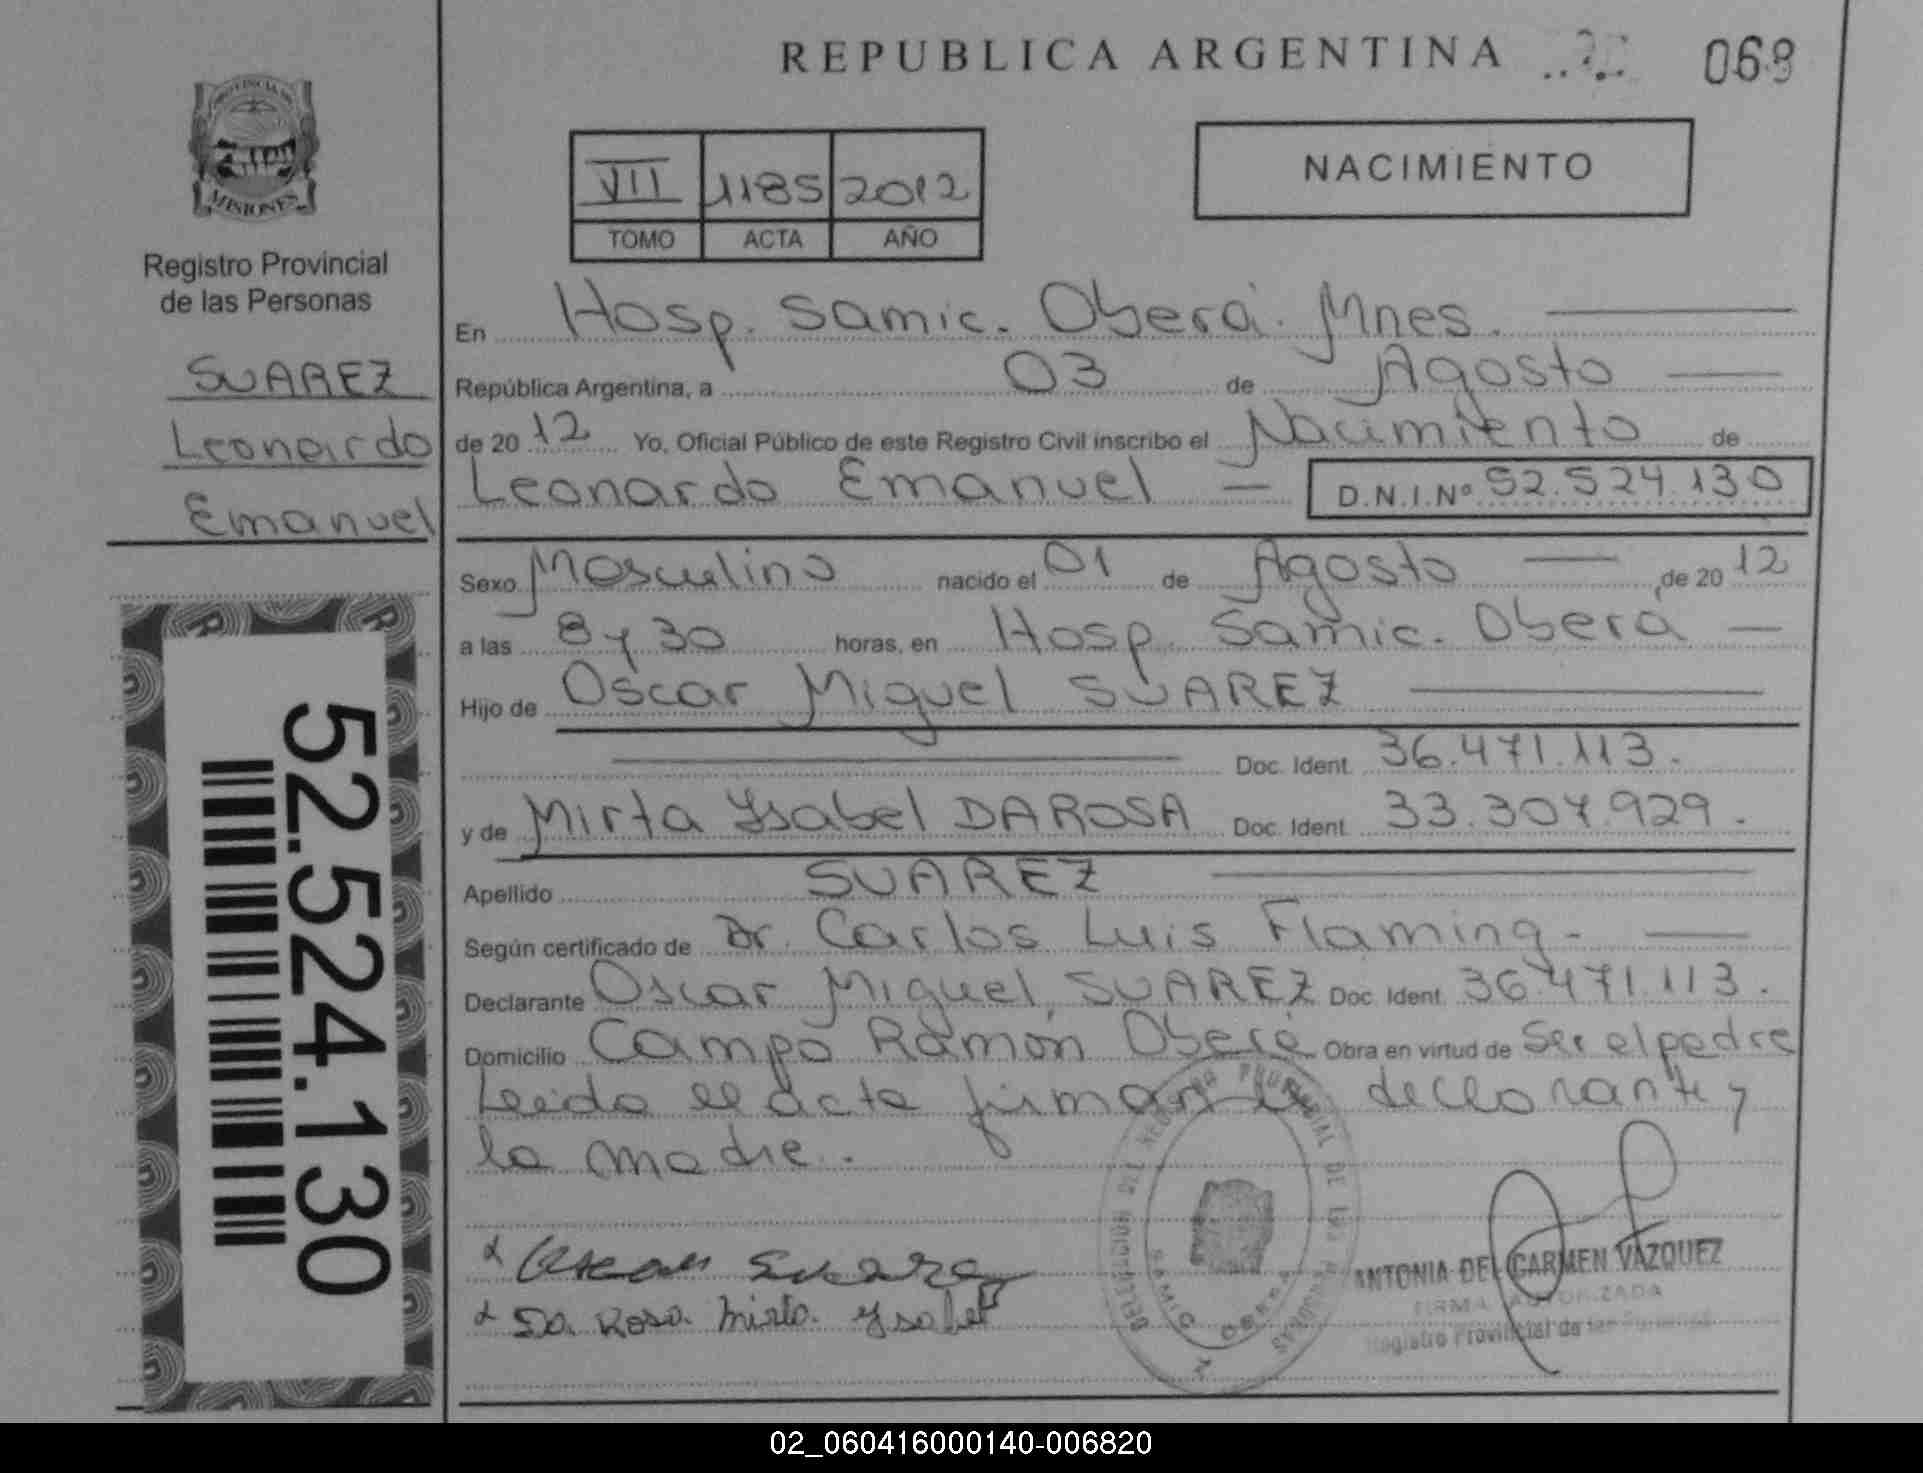 REPUBLICA ARGENTINA
068
PROVINCIA DE
MISIONES
Registro Provincial
de las Personas
SUAREZ
Leonardo
Emanuel
52.524.130
VII 1185 2012
TOMO ACTA AÑO
NACIMIENTO
En Hosp. Samic. Oberá. Mnes.
República Argentina, a 03 de Agosto
de 2012 Yo, Oficial Público de este Registro Civil inscribo el Nacimiento de
Leonardo Emanuel — D.N.I.Nº 52.524.130
Sexo Masculino nacido el 01 de Agosto — de 2012
a las 8 y 30 horas, en Hosp. Samic. Oberá —
Hijo de Oscar Miguel SUAREZ
Doc. Ident. 36.471.113.
y de Mirta Ysabel DAROSA Doc. Ident. 33.307.929.
Apellido SUAREZ
Según certificado de Dr. Carlos Luis Flaming.
Declarante Oscar Miguel SUAREZ Doc. Ident. 36.471.113.
Domicilio Campo Ramón Oberá Obra en virtud de Ser el padre
Leida el acta firman el declarante y
la madre.
Oscar Suarez
Da Rosa Mirta Ysabel
ANTONIA DEL CARMEN VAZQUEZ
FIRMA AUTORIZADA
Registro Provincial de las Personas
02_060416000140-006820